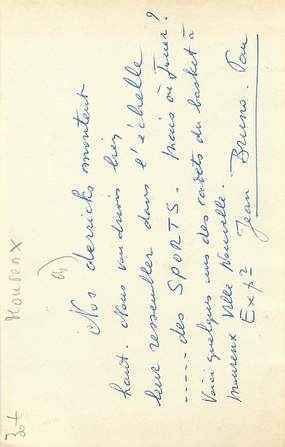 Mourenx
64)
Nos derricks montent
haut. Nous voudrions bien
leur ressembler dans l'échelle
...... des SPORTS. Mais où jouer ?
Voici quelques uns des cadets du basket à
Mourenx Ville Nouvelle.
Expr Jean Bruno. Pau